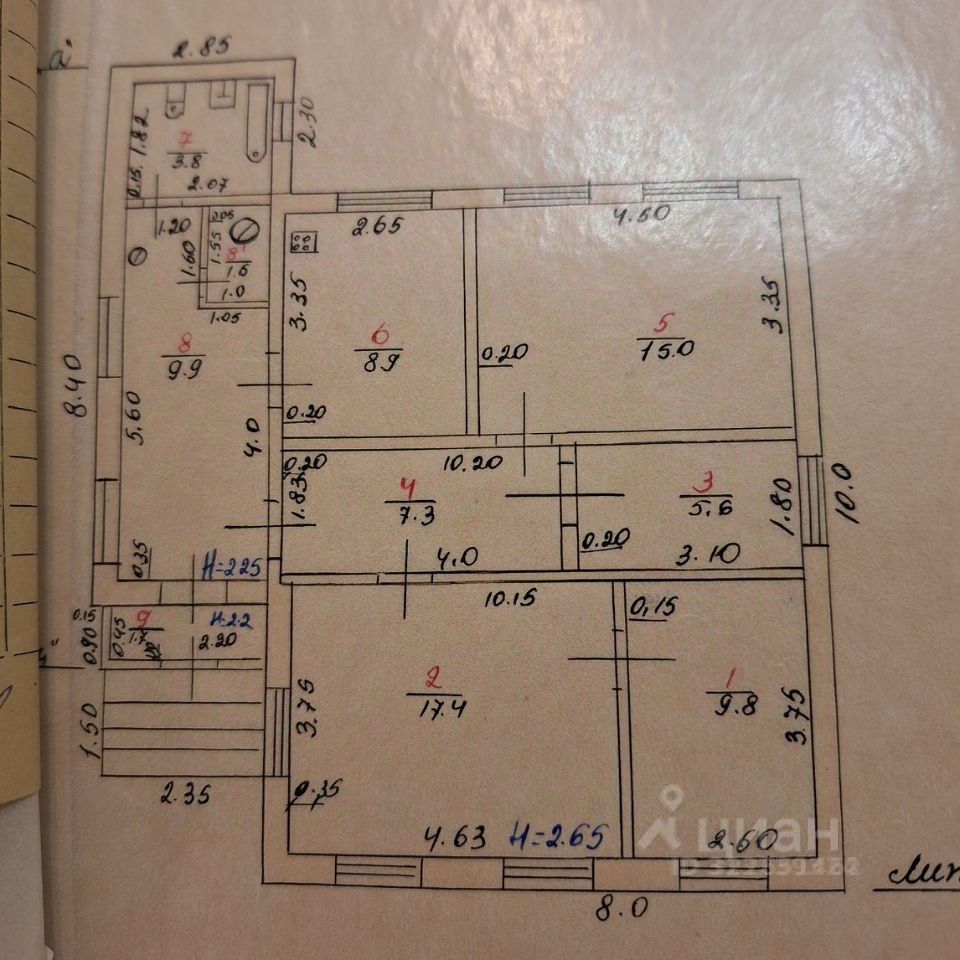 а'
2.85
2.30
1.82
7
3.8
2.07
0.15
1.20
1.60
1.55
8'
1.6
1.0
1.05
2.65
4.50
3.35
3.35
6
8.9
0.20
5
15.0
0.20
8
9.9
8.40
5.60
4.0
0.20
1.83
10.20
4
7.3
4.0
3
5.6
0.20
3.10
1.80
10.0
0.35
H=2.25
0.15
0.90
0.45
9
1.7
H=2.2
2.20
10.15
0,15
2
17.4
1
9.8
3.75
3.75
1.50
2.35
0.35
4.63
H=2.65
2.60
8.0
циан
Лит